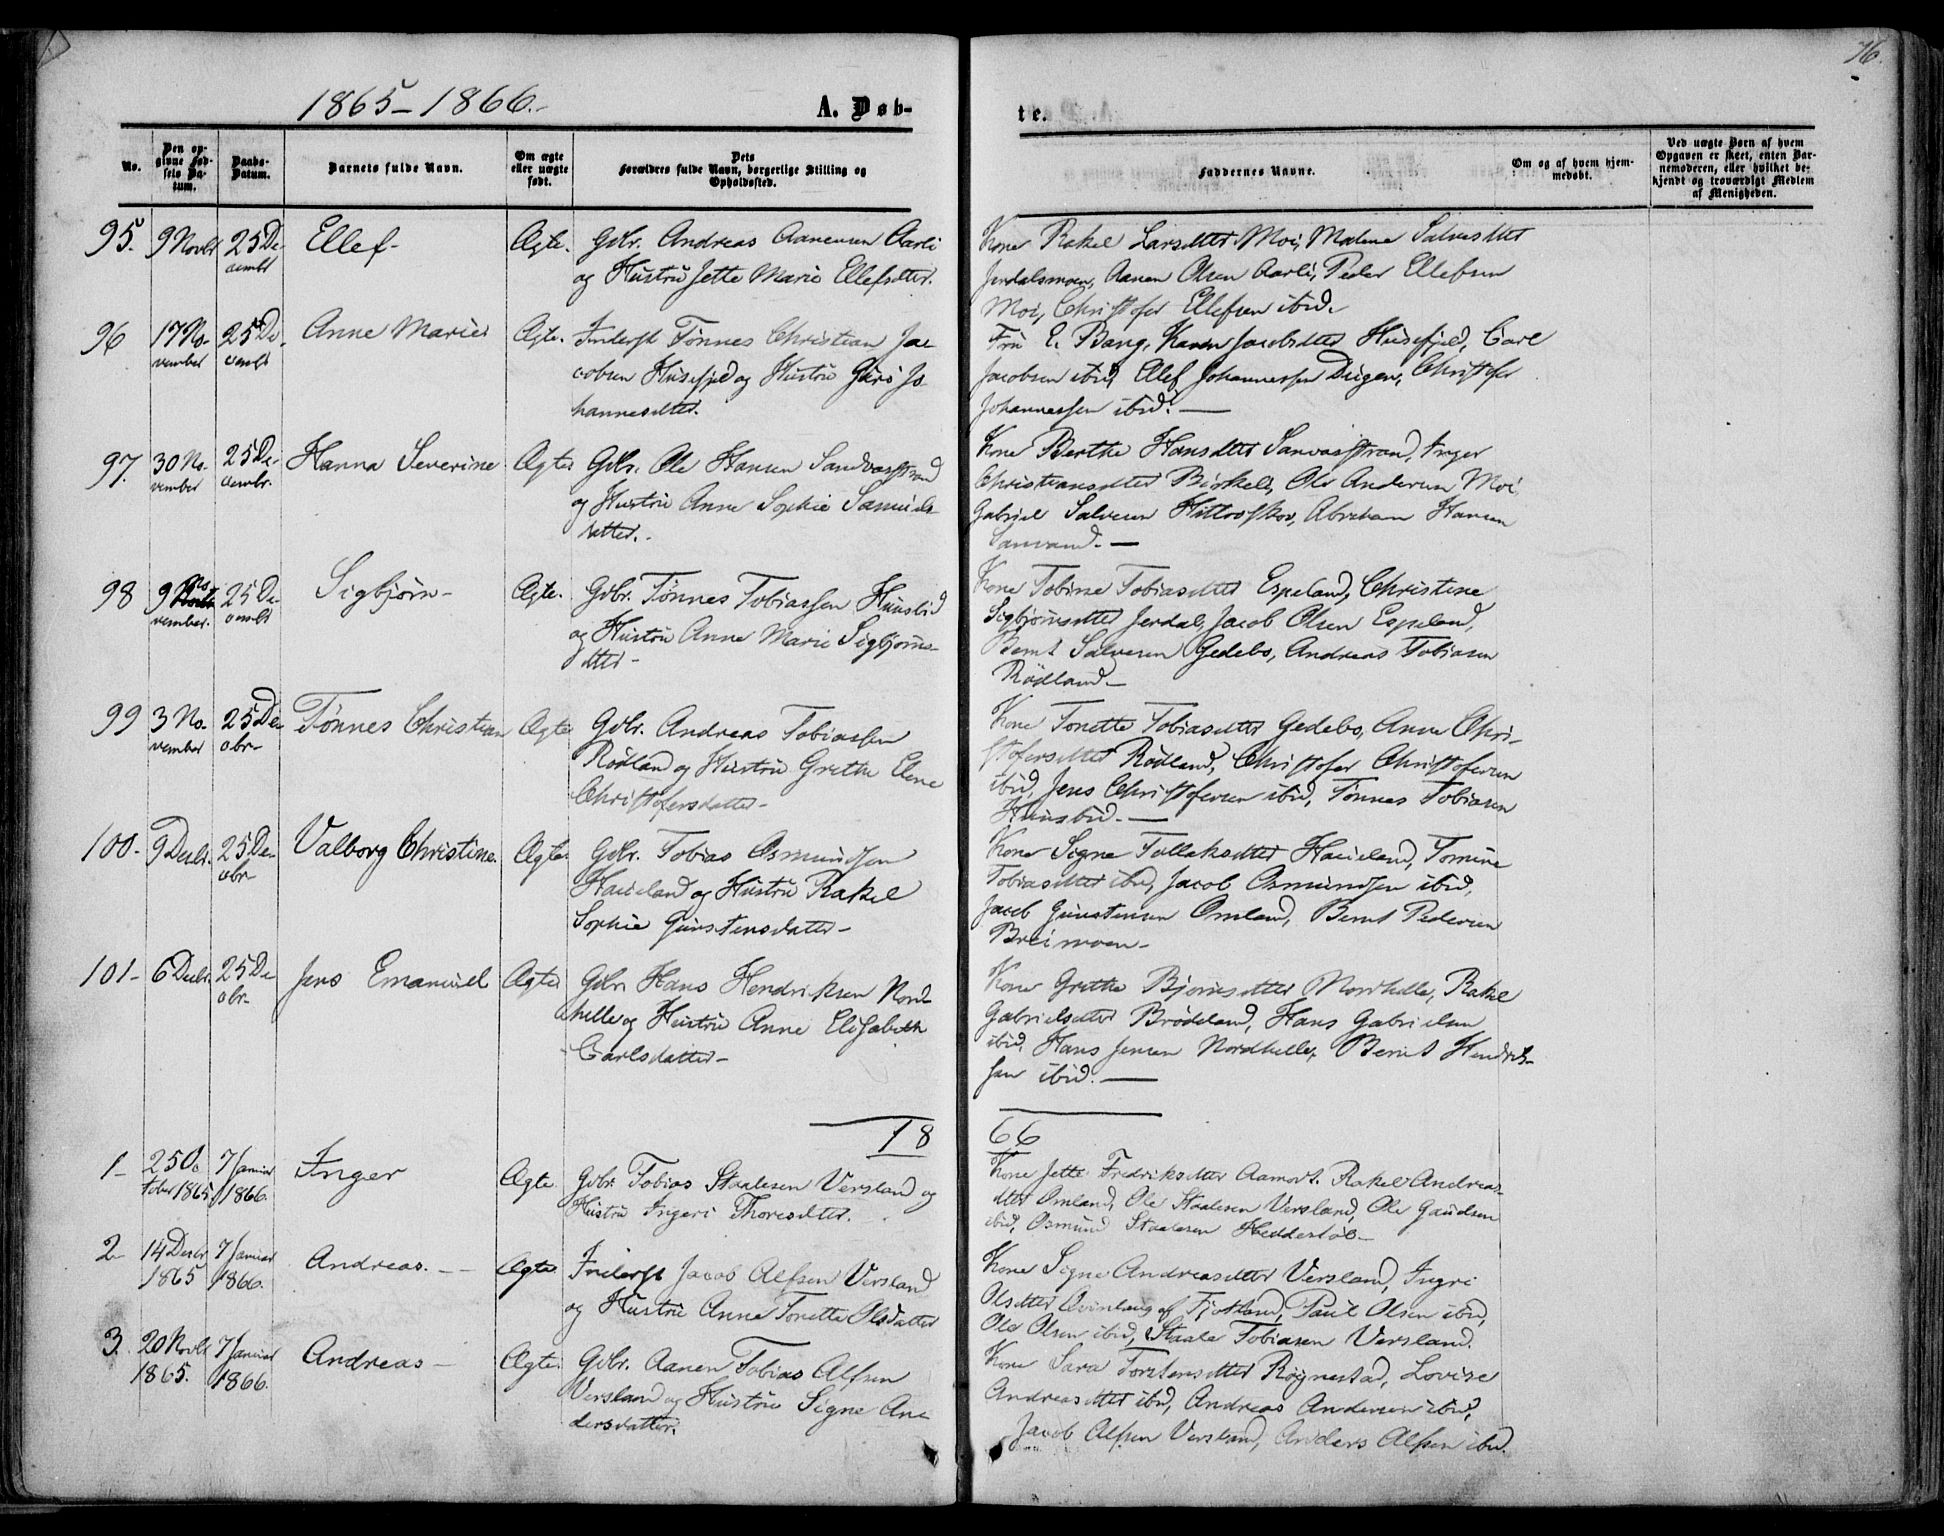 76.
1865-1866.-
A. Døb-
te.
No.
Den opgivne Fødsels Datum.
Daabs-Datum.
Barnets fulde Navn.
Om ægte eller uægte født.
Dets Forældres fulde Navn, borgerlige Stilling og Opholdssted.
Faddernes Navne.
Om og af hvem hjemmedøbt.
Ved uægte Børn af hvem Opgaven er skeet, enten Barnemoderen, eller hvilket bekjendt og troværdigt Medlem af Menigheden.
95. 9 Novbr 25 De- Ellef- Ægte. Gdbr. Andreas Aanensen Aarli
cembr og Hustru Jette Marie Ellefsdtter.
Kone Rakel Larsdtter Moi, Malene Salvesdtter
Jerdalsmoen, Aanen Olsen Aarli, Peder Ellefsen
Moi, Christofer Ellefsen ibid.
96 17 No- 25 De- Anne Marie Ægte. Inderst Tønnes Christian Ja-
vember cembr cobsen Husefjeld og Hustru Guro Jo-
hannesdtter.
Fru E. Bang, Karen Jacobsdtter Husefjeld, Carl
Jacobsen ibid, Elef Johannessen Dugen, Christofer
Johannessen ibid. -
97. 30 No- 25 De- Hanna Severine Ægte Gdbr. Ole Hansen Sandvasstrand
vember cembr. og Hustru Anne Sophie Samuels-
datter.-
Kone Berthe Hansdtter Sanvasstran, Inger
Christiansdtter Birkeli, Ole Andersen Moi,
Gabriel Salvesen Abraham Hansen
Sanvand. -
98 9 No- 25 De- Sigbjørn- Ægte. Gdbr. Tønnes Tobiassen Hunsbid
vember. cembr og Hustru Anne Marie Sigbjørns-
dtter-
Kone Tobine Tobiasdtter Espeland, Christine
Sigbjørnsdtter Jerdal, Jacob Olsen Espeland,
Bernt Salvesen Gedebo, Andreas Tobiasen
Rødland-
99 3 No- 25 De- Tønnes Christian Ægte Gdbr. Andreas Tobiassen
vember cbr- Rødland og Hustru Grethe Elene
Christofersdatter-
Kone Tonette Tobiasdtter Gedebo, Anne Chri-
stofersdtter Rødland, Christofer Christofersen
ibid, Jens Christofersen ibid, Tønnes Tobiasen
Hunsbid. -
100- 9 Decbr. 25 De- Valborg Christine. Ægte. Gdbr. Tobias Osmundsen
cbr- Haueland og Hustru Rakel
Sophie Gunstensdatter-
Kone Signe Tollaksdtter Haueland, Tomine
Tobiasdtter ibid, Jacob Osmundsen ibid,
Jacob Gunstensen Omland, Bernt Pedersen
Breimoen-
101- 6 Decbr. 25 De- Jens Emanuel Ægte Gdbr. Hans Hendriksen Nord-
cbr- helle og Hustru Anne Elisabeth
Carlsdatter-
Kone Grethe Bjørnsdtter Nordhelle, Rakel
Gabrielsdtter Brødeland, Hans Gabrielsen
ibid, Hans Jensen Nordhelle, Bernt Hendrik-
sen ibid. -
18
66
1- 25 Oc- 7 Januar Inger Ægte Gdbr. Tobias Staalesen Versland og
tober 1865 1866. Hustru Ingeri Thoresdtter.
Kone Jette Fredriksdtter Aamot. Rakel Andreas-
dtter Omland, Ole Staalesen Versland, Ole Gaudsen
ibid, Osmund Staalesen
2- 14 Decbr 7 Januar Andreas. - Ægte Inderst Jacob Alfsen Versland
1865 1866. og Hustru Anne Tonette Olsdatter
Kone Signe Andreasdtter Versland, Ingri
Olsdtter Qvinlaug af Fjotland, Paul Olsen ibid,
Ole Olsen ibid, Staale Tobiasen Versland.
3. 20 Novbr 7 Januar Andreas- Ægte Gdbr. Aanen Tobias Alfsen
1865. 1866. Versland og Hustru Signe An-
dersdatter.
Kone Sara Torstensdtter Røgnestad, Lovise
Andreasdtter ibid, Andreas Andersen ibid,
Jacob Alfsen Versland, Anders Alfsen ibid.